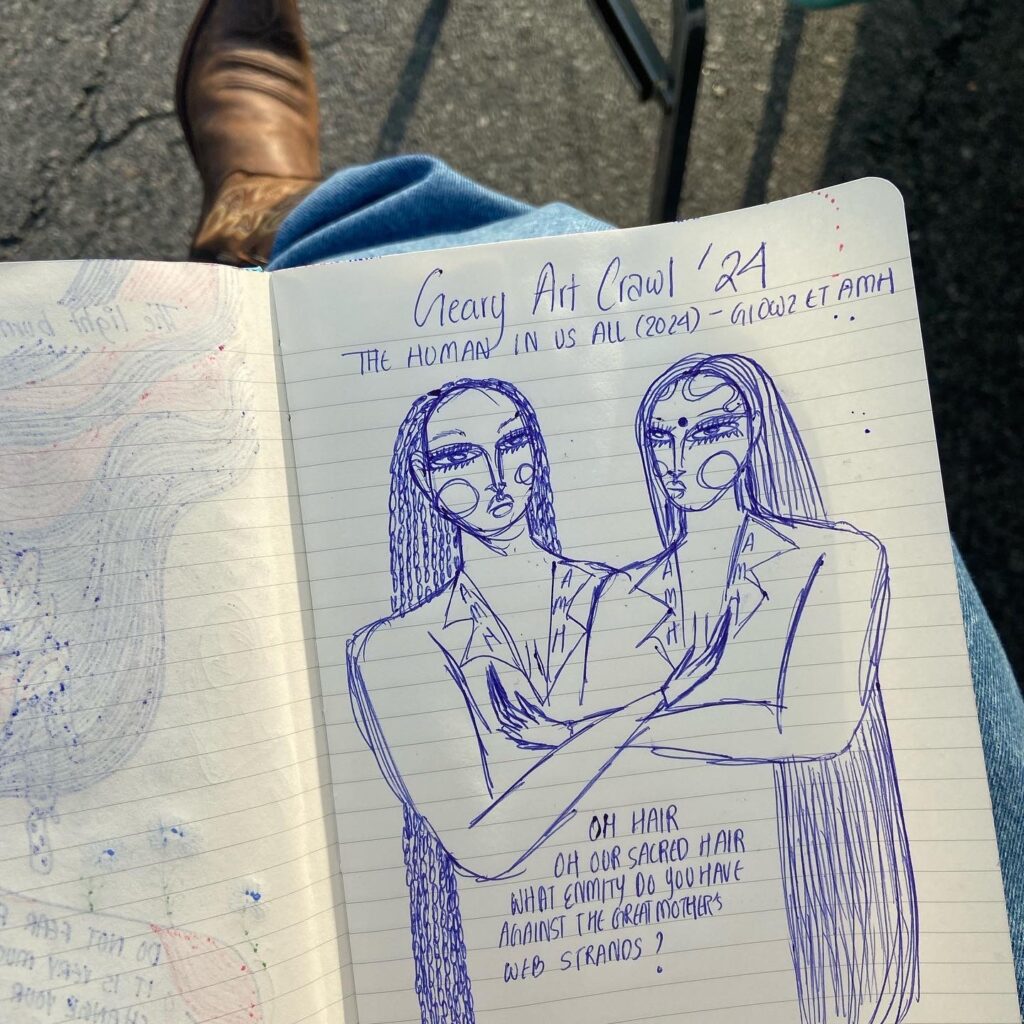 Geary Art Crawl '24
THE HUMAN IN US ALL (2024) - GLOWZ ET AMH
A M H
A M H
A M H
A M H
OH HAIR
OH OUR SACRED HAIR
WHAT ENMITY DO YOU HAVE
AGAINST THE GREAT MOTHER'S
WEB STRANDS ?
The light
DO NOT FEAR
IT IS VERY
CHANGE YOUR